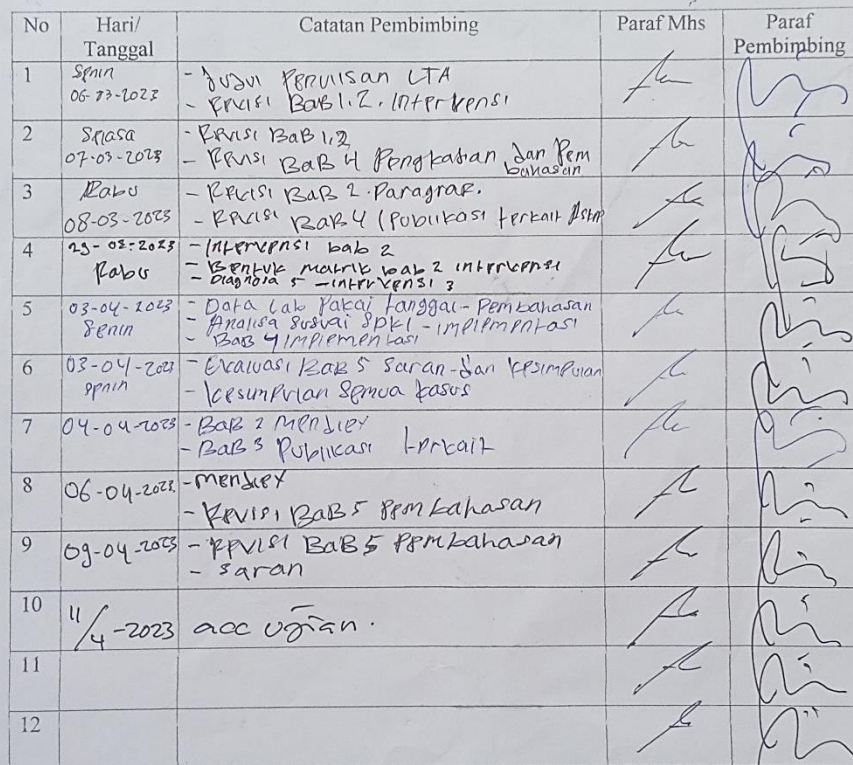 No Hari/ Catatan Pembimbing Paraf Mhs Paraf
Tanggal Pembimbing
1 Senin - Judul Penulisan LTA
06-03-2023 - Revisi BaB 1.2. Intervensi
2 Selasa - Revisi BaB 1,2
07-03-2023 - Revisi BaB 4 Pengkajian dan Pem
bahasan
3 Rabu - Revisi BaB 2 Paragraf.
08-03-2023 - Revisi BaB 4 (Publikasi terkait
4 29-03-2023 - Intervensi bab 2
Rabu - Bentuk matrik bab 2 intervensi
- Diagnosa 5 - intervensi 3
5 03-04-2023 - Data Lab Pakai tanggal - Pembahasan
Senin - Analisa Sesuai SDKI - implementasi
- BaB 4 implementasi
6 03-04-2023 - Evaluasi BaB 5 saran dan kesimpulan
Senin - Kesimpulan Semua kasus
7 04-04-2023 - BaB 2 Mendley
- BaB 3 Publikasi terkait
8 06-04-2023 - mendley
- Revisi BaB 5 Pembahasan
9 09-04-2023 - Revisi BaB 5 Pembahasan
- saran
10 11/4-2023 acc ujian.
11
12